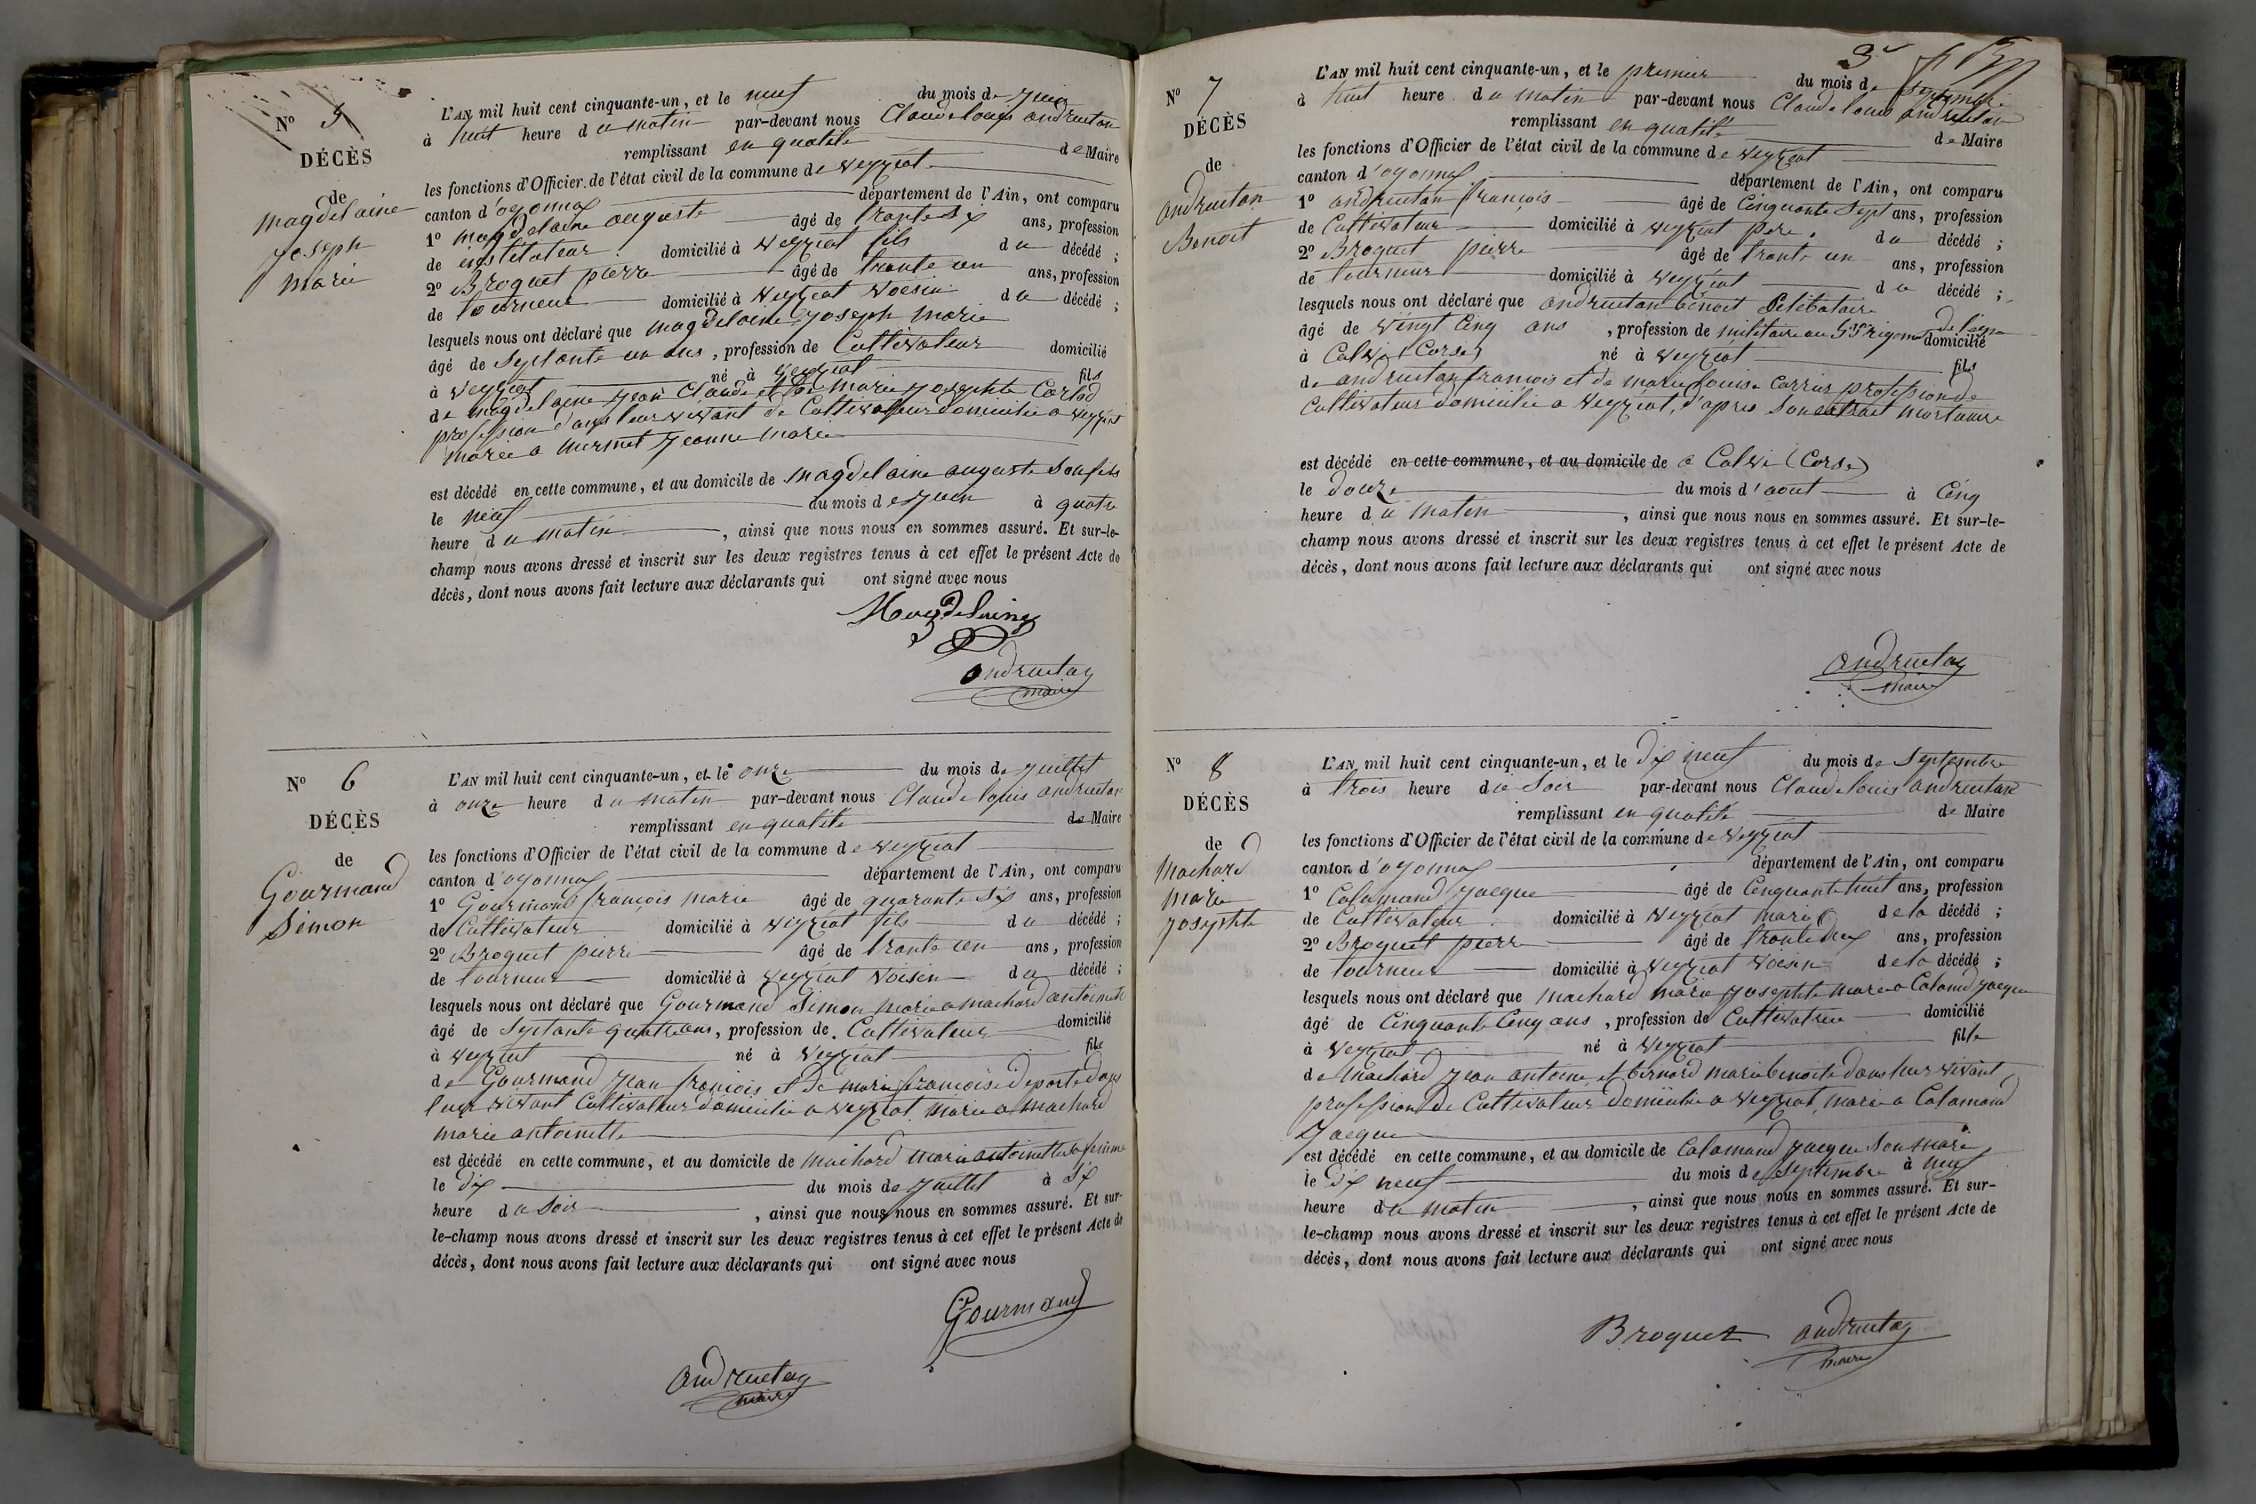 N° 5
DÉCÈS
de
magdelaine
joseph
marie
L'AN mil huit cent cinquante-un, et le neuf du mois de juin
à huit heure du matin par-devant nous Claude louis andruetan
remplissant en qualité de Maire
les fonctions d'Officier de l'état civil de la commune de veyziat
canton d'oyonnax département de l'Ain, ont comparu
1° magdelaine auguste âgé de trante six ans, profession
de institateur domicilié à veyziat fils du décédé ;
2° Broquet pierre âgé de trante un ans, profession
de tourneur domicilié à veyziat voesin du décédé ;
lesquels nous ont déclaré que magdelaine joseph marie
âgé de septante un ans, profession de Cultivateur domicilié
à veyziat né à veyziat fils
de magdelaine jean Claude et de marie josephte
profession dans leur vivant de Cultivateur domicilié a veyziat
marié a mermet jeanne marie
est décédé en cette commune, et au domicile de magdelaine auguste son fils
le neuf du mois de juin à quatre
heure du matin, ainsi que nous nous en sommes assuré. Et sur-le-
champ nous avons dressé et inscrit sur les deux registres tenus à cet effet le présent Acte de
décès, dont nous avons fait lecture aux déclarants qui ont signé avec nous
Magdelaine
andruetan
maire
N° 6
DÉCÈS
de
Gourmand
Simon
L'AN mil huit cent cinquante-un, et le onze du mois de juillet
à onze heure du matin par-devant nous Claude louis andruetan
remplissant en qualité de Maire
les fonctions d'Officier de l'état civil de la commune de veyziat
canton d'oyonnax département de l'Ain, ont comparu
1° Gourmand françois marie âgé de quarante six ans, profession
de Cultivateur domicilié à veyziat fils du décédé ;
2° Broquet pierre âgé de trante un ans, profession
de tourneur domicilié à veyziat voesin du décédé ;
lesquels nous ont déclaré que Gourmand Simon marié a machard antoinette
âgé de septante quatre ans, profession de Cultivateur domicilié
à veyziat né à veyziat fils
de Gourmand jean françois et de marie françoise deporte dans
leur vivant Cultivateur domicilié a veyziat marié a machard
marie antoinette
est décédé en cette commune, et au domicile de machard marie antoinette sa femme
le dix du mois de juillet à six
heure du soir, ainsi que nous nous en sommes assuré. Et sur-
le-champ nous avons dressé et inscrit sur les deux registres tenus à cet effet le présent Acte de
décès, dont nous avons fait lecture aux déclarants qui ont signé avec nous
Gourmand
andruetan
maire
3e
N° 7
DÉCÈS
de
andruetan
Benoit
L'AN mil huit cent cinquante-un, et le premier du mois de septembre
à huit heure du matin par-devant nous Claude louis andruetan
remplissant en qualité de Maire
les fonctions d'Officier de l'état civil de la commune de veyziat
canton d'oyonnax département de l'Ain, ont comparu
1° andruetan françois âgé de Cinquante sept ans, profession
de Cultivateur domicilié à veyziat pere du décédé ;
2° Broquet pierre âgé de trante un ans, profession
de tourneur domicilié à veyziat du décédé ;
lesquels nous ont déclaré que andruetan benoit Célébataire
âgé de vingt Cinq ans, profession de militaire au de ligne domicilié
à Calvi (Corse) né à veyziat fils
de andruetan françois et de marie louise Carrier profession de
Cultivateur domicilié a veyziat, d'apres son extrait mortuaire
est décédé en cette commune, et au domicile de a Calvi (Corse)
le douze du mois d'aout à Cinq
heure du matin, ainsi que nous nous en sommes assuré. Et sur-le-
champ nous avons dressé et inscrit sur les deux registres tenus à cet effet le présent Acte de
décès, dont nous avons fait lecture aux déclarants qui ont signé avec nous
andruetan
maire
N° 8
DÉCÈS
de
Machard
marie
josephte
L'AN mil huit cent cinquante-un, et le dix neuf du mois de septembre
à trois heure du soir par-devant nous Claude louis andruetan
remplissant en qualité de Maire
les fonctions d'Officier de l'état civil de la commune de veyziat
canton d'oyonnax département de l'Ain, ont comparu
1° Calamand jacque âgé de Cinquante huit ans, profession
de Cultivateur domicilié à veyziat mari de la décédé ;
2° Broquet pierre âgé de trante deux ans, profession
de tourneur domicilié à veyziat voesin de la décédé ;
lesquels nous ont déclaré que machard marie josephte marié a Calamd jacque
âgé de Cinquante Cinq ans, profession de Cultivatrice domicilié
à veyziat né à veyziat fille
de machard jean antoine et bernard marie benoite dans leur vivant
profession de Cultivateur domicilié a veyziat, marié a Calamand
jacque
est décédé en cette commune, et au domicile de Calamand jacque son mari
le dix neuf du mois de septembre à neuf
heure du matin, ainsi que nous nous en sommes assuré. Et sur-
le-champ nous avons dressé et inscrit sur les deux registres tenus à cet effet le présent Acte de
décès, dont nous avons fait lecture aux déclarants qui ont signé avec nous
Broquet andruetan
maire